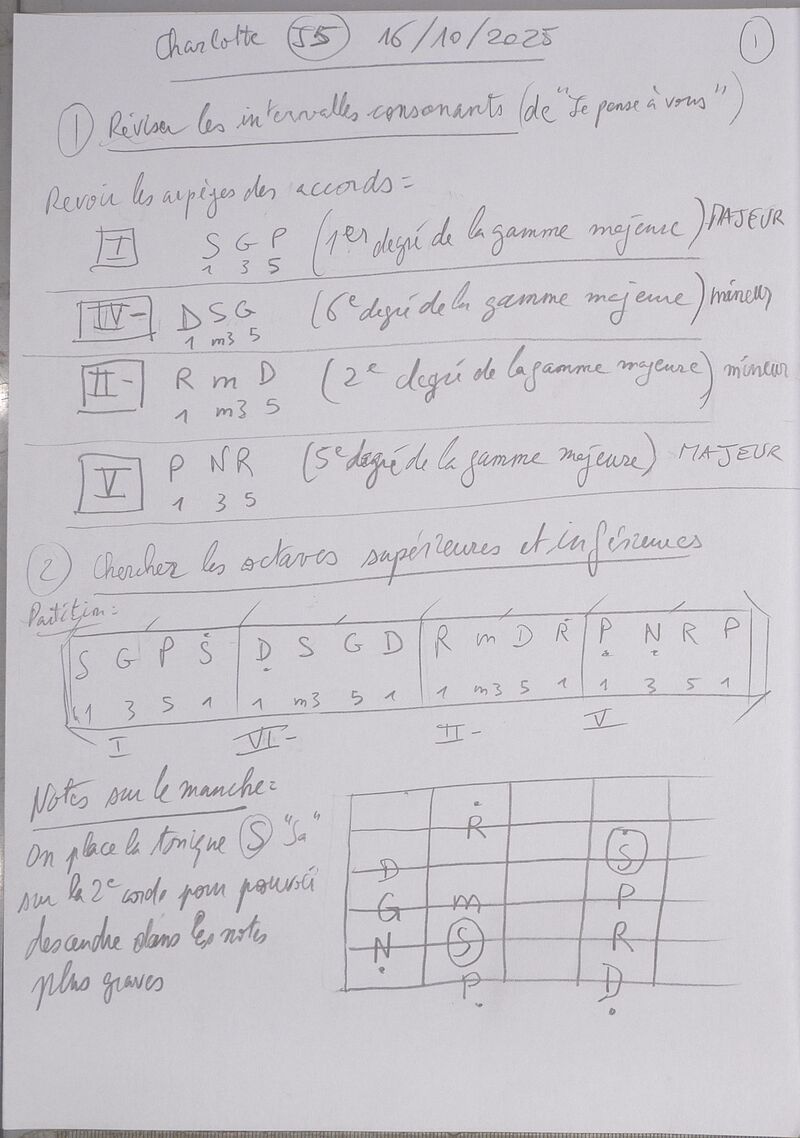 Charlotte S5 16/10/2025
1
1 Réviser les intervalles consonants (de "Je pense à vous")
Revoir les arpèges des accords =
I S G P (1er degré de la gamme majeure) MAJEUR
1 3 5
IV- D S G (6e degré de la gamme majeure) mineur
1 m3 5
II- R m D (2e degré de la gamme majeure) mineur
1 m3 5
V P N R (5e degré de la gamme majeure) MAJEUR
1 3 5
2 Chercher les octaves supérieures et inférieures
Partition :
S G P Ṡ Ḍ S G D R m D Ṙ P̣ Ṇ R P
1 3 5 1 1 m3 5 1 1 m3 5 1 1 3 5 1
I VI- II- V
Notes sur le manche =
On place la tonique S "Sa"
sur la 2e corde pour pouvoir
descendre dans les notes
plus graves
Ṙ
D Ṡ
G m P
Ṇ S R
P̣ Ḍ